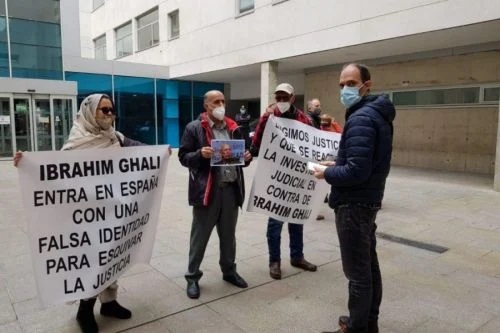 IBRAHIM GHALI
ENTRA EN ESPAÑA
CON UNA
FALSA IDENTIDAD
PARA ESQUIVAR
LA JUSTICIA
IGIMOS JUSTIC
Y QUE SE REA
LA INVES
JUDICIAL EN
CONTRA DE
IBRAHIM GHALI